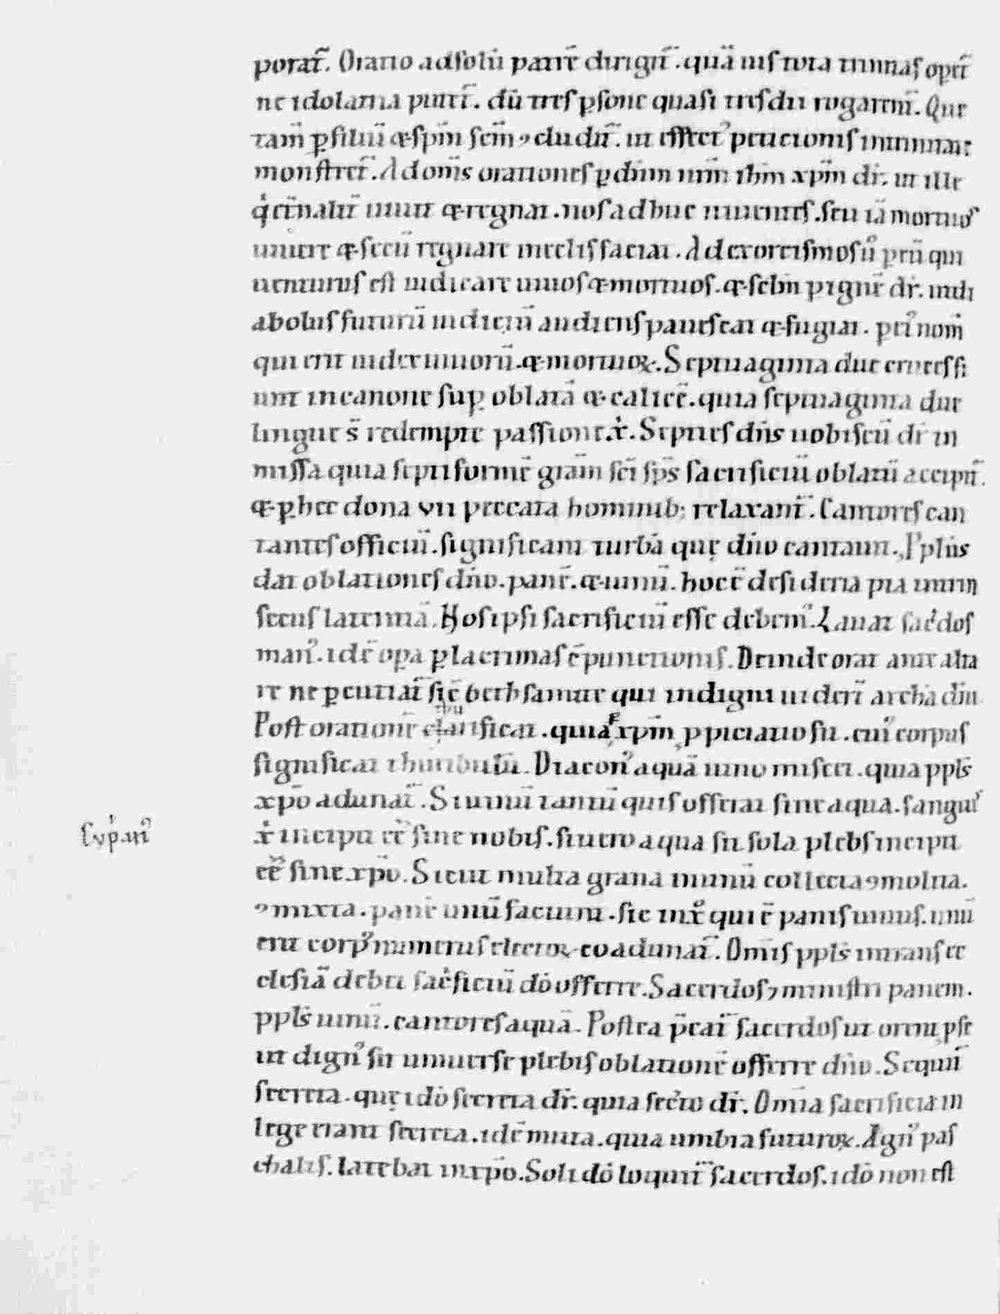 porat̄. Oratio ad solū patrē dirigit̄. quā uis tota trinitas opti
ne idolatria putet̄. dū tres psone quasi tres dii rogarent̄. Que
tam̄ p filiū & spm̄ scm̄ ɔcludit̄. ut effect᾿ petitionis
monstret̄. Ad om̄s orationes p dnm̄ nrm̄ ihm xpm̄ dr̄. ut ille
q̇ et̄naliť uiuit & regnat. nos adhuc uiuentes. seu iā mortuos
uiuere & secū regnare in celis faciat. Ad exorcismos ū p eū qui
uenturus est iudicare uiuos & mortuos. & sclm̄ p ignē dr̄. ut di
abolus futurū iudiciū audiens pauescat & fugiat. p ei᾿ nom̄
qui erit iudex uiuorū. & mortuoꝝ. Septuaginta due cruces fi
unt in canone sup oblatā & calicē. quia septuaginta due
lingue s̄ redempte passione.x̄. Septies dn̄s uobiscū dr̄ in
missa quia septiformē gram̄ sci sps̄ sacrificiū oblatū accipit̄.
& p hec dona vii peccata hominib; relaxant̄. Cantores can
tantes officiū. significant turbā quę dn̄o cantauit. Ppl̄us
dat oblationes dn̄o. panē. & uinū. hoc ē desideria pia intrin
secus latentia. Hos ipsi sacrificiū esse debem᾿. Lauat sac̓dos
man᾿. id ē opa p lacrimas ɔpunctionis. Deinde orat ante alta
re ne pcutiat̄ sic̄ bethsamite qui indigni uider̄ archā dn̄i
Post orationē clarificat. quia xpm̄ ppiciatio sit. cui᾿ corpus
significat thuribulū. Diacon᾿ aquā uino miscet. quia ppl̄s
xpo adunat̄. Si uinū tantū quis offerat sine aqua. sangui᾿
x̄ incipit eē sine nobis. si uero aqua sit sola plebs incipit
eē sine xpo. Sicut multa grana in unū collecta ɔmolita.
ɔmixta. panē unū faciunt. sic in x̄ qui ē panis unus. unū
erit corp᾿ numerus electoꝝ coadunat̄. Om̄is ppl̄s intrans ec
clesiā debet sac̓ficiū dō offerre. Sacerdos ⁊ ministri panem.
ppl̄s uinū. cantores aquā. Postea p̄cat̄ sacerdos ut orent p se
ut dign᾿ sit uniuerse plebis oblationē offerre dn̄o. Sequit̄
secreta. quę idō secreta dr̄. quia secreto dr̄. Om̄ia sacrificia in
lege erant secreta. id ē muta. quia umbra futuroꝝ. Agn᾿ pas
chalis. latebat in xpo. Soli dō loquit̄ sacerdos. idō non est